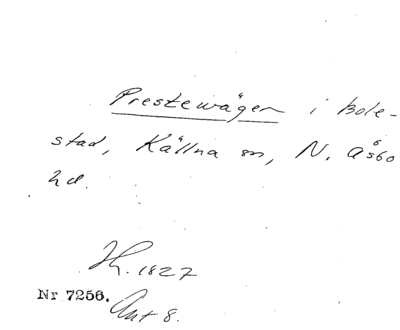 Prestewägen i Bole-
stad, Källna sn, N. Åsbo
hd.
H. 1827
Nr 7256.
Ant 8.